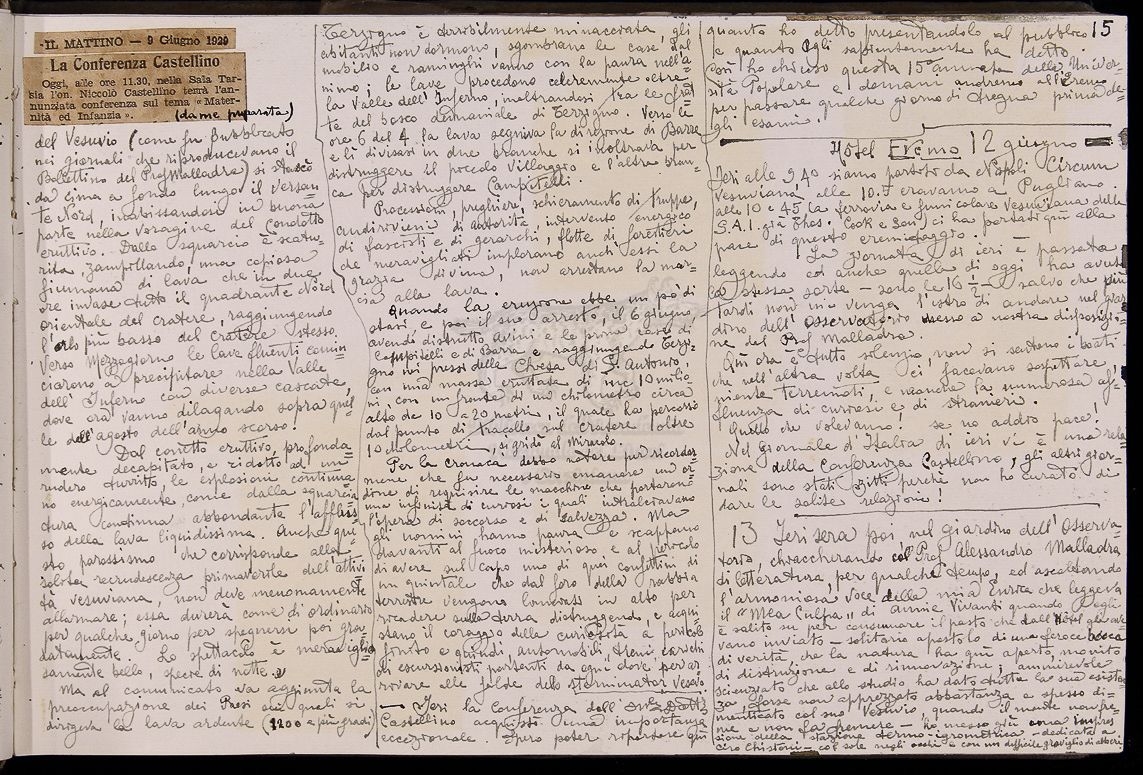 IL MATTINO — 9 Giugno 1929
La Conferenza Castellino
Oggi, alle ore 11.30, nella Sala Tar-
sia l'on. Niccolò Castellino terrà l'an-
nunziata conferenza sul tema « Mater-
nità ed Infanzia ».
(da me preparata)
del Vesuvio (come fu pubblicato
nei giornali che riproducevano il
Bollettino del Prof Malladra) si
da cima a fondo lungo il versan
te Nord, inabissandosi in buona
parte nella voragine del condotto
eruttivo. Dallo squarcio è scatu-
rita, zampillando, una copiosa
fiumana di lava che in due
ore invase tutto il quadrante Nord
orientale del cratere, raggiungendo
l'orlo più basso del cratere stesso.
Verso Mezzogiorno le lave fluenti comin
ciarono a precipitare nella Valle
dell'Inferno con diverse cascate,
dove ora vanno dilagando sopra quel
le dell'agosto dell'anno scorso!
Dal conetto eruttivo, profonda
mente decapitato, e ridotto ad un
rudero, le esplosioni continua
no energicamente, come dalla squarcia
tura continua abbondante l'afflus
so della lava liquidissima. Anche que
sto parossismo che corrisponde alla
solita recrudescenza primaverile dell'attivi
tà vesuviana, non deve menomamente
allarmare; essa durerà come di ordinario
per qualche giorno per spegnersi poi gra
datamente. Lo spettacolo è meraviglio
samente bello, specie di notte.
Ma al comunicato va aggiunta la
preoccupazione dei Paesi sui quali si
dirigeva la lava ardente (1200 e più gradi)
Terzigno è terribilmente minacciata, gli
abitanti non dormono, sgombrano le case dal
mobilio e raminghi vanno con la paura nell'a
nimo; le lave procedono celeremente oltre
la Valle dell'Inferno, inoltrandosi tra le frat
te del bosco demaniale di Terzigno. Verso le
ore 6 del 4 la lava seguiva la direzione di Barre
e lì divisasi in due branche si inoltrava per
distruggere il piccolo villaggio e l'altra bran
ca per distruggere Campitelli.
Processioni, preghiere, schieramento di truppe,
andirivieni di autorità, intervento energico
di fascisti e di gerarchi, flotte di forestieri
che meravigliati implorano anch'essi la
grazia divina, non arrestano la mar-
cia alla lava.
Quando la eruzione ebbe un pò di
stasi e poi il suo arresto, il 6 giugno
avendo distrutto divini e le prime case di
Campitelli e di Barra e raggiungendo Terzi
gno ivi pressi della Chiesa di S. Antonio,
con una massa eruttata di mc 10 milio
ni, con un fronte di un chilometro circa
alto da 10 a 20 metri, il quale ha percorso
dal punto di tracollo sul cratere oltre
10 chilometri, si gridò al miracolo.
Per la cronaca debbo notare per ricordar
mene che fu necessario emanare un or
dine di requisire le macchine che portaron
una infinità di curiosi i quali intralciavano
l'opera di soccorso e di salvezza. Ma
gli uomini hanno paura e scappano
davanti al fuoco misterioso e al pericolo
di avere sul capo uno di quei confettini di
un quintale che dal foro della rabbia
terrestre vengono lanciati in alto per
ricadere sulla terra distruggendo, e acqui
stano il coraggio della curiosità a pericolo
finito e quindi automobili, treni carichi
di escursionisti partenti da ogni dove per ar
rivare alle falde dello sterminator Vesevo.
— Ieri la Conferenza dell'
Castellino acquistò una importanza
eccezionale. Spero poter riportare qui
15
quanto ho detto presentandolo al pubblico
e quanto Egli sapientemente ha detto.
Così ho chiuso questa 15ª annata della Univer
sità Popolare e domani andremo all'Eremo
per passare qualche giorno di tregua prima de
gli esami.
Hôtel Eremo 12 giugno
Ieri alle 9 40 siamo partiti da Napoli Circum
Vesuviana alle 10.5 eravamo a Pugliano
alle 10 e 45 la ferrovia e funicolare Vesuviana della
S.A.I. già Thos. Cook e Son) ci ha portati qui alla
pace di questo eremitaggio.
La giornata di ieri è passata
leggendo ed anche quella di oggi ha avuto
la stessa sorte — sono le 16 ½ — salvo che più
tardi non mi venga l'estro di andare nel giar
dino dell'Osservatorio messo a nostra disposizio
ne del Prof Malladra.
Qui ora è tutto silenzio, non si sentono i boati
che nell'altra volta ci facevano soffrire,
niente terremoti, e manca la numerosa af
fluenza di curiosi e di stranieri.
Quello che volevamo: se no addio pace!
Nel Giornale d'Italia di ieri vi è una rela
zione della Conferenza Castellino, gli altri gior
nali sono stati zitti perché non ho curato di
dare le solite relazioni!
13 Ieri sera poi, nel giardino dell'Osserva
torio, chiacchierando col Prof Alessandro Malladra
di letteratura, per qualche tempo, ed ascoltando
l'armoniosa voce della mia Enrica che leggeva
il "Mea Culpa" di Annie Vivanti quando Egli
è salito su per consumare il pasto che dall'Hotel gli ave
vano inviato — solitario apostolo di una feroce bocca
di verità, che la natura ha qui aperto monito
di distruzione e di rinnovazione; ammirevole
scienziato che allo studio ha dato tutta la sua esisten
za, forse non apprezzato abbastanza e spesso di-
menticato col suo Vesuvio, quando il monte non fu
ma e non fa fremere — ho messo giù una impres
sione della stazione termo-igrometrica — dedicata a
Ciro Chistoni — col sole negli occhi e con un difficile groviglio di alberi